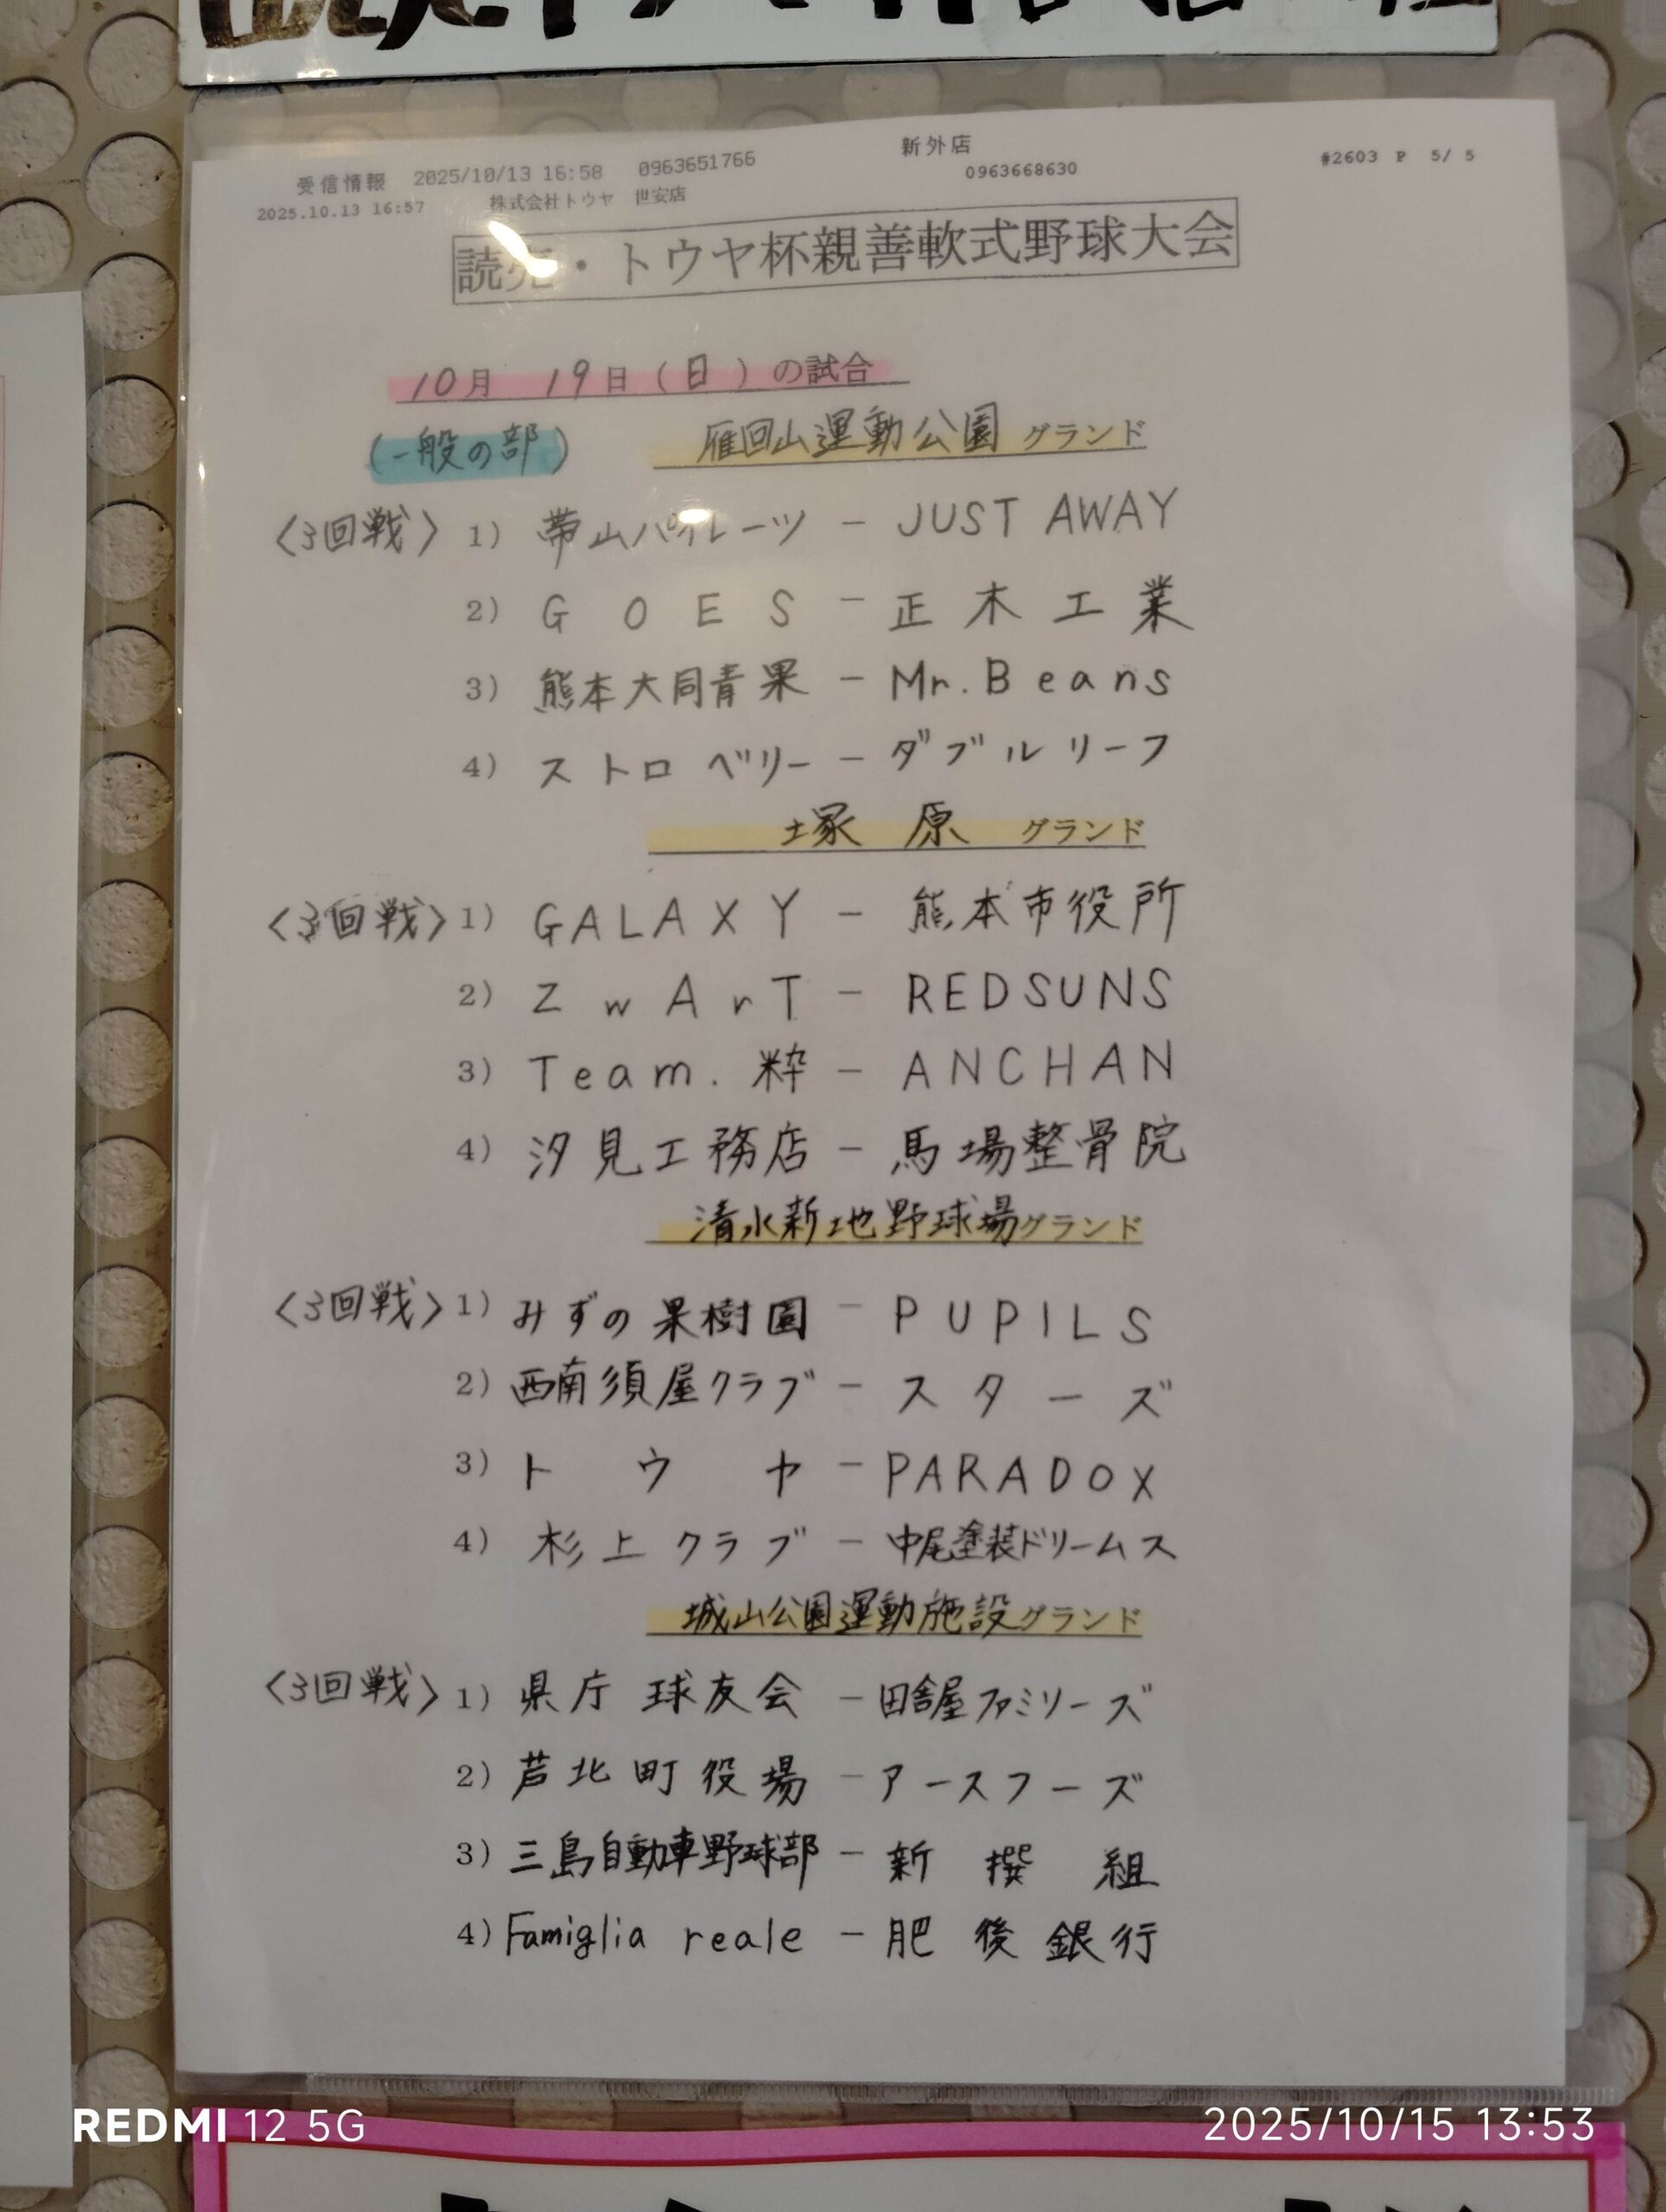 受信情報 2025/10/13 16:58 0963651766 新外店 0963668630 #2603 P 5/ 5
2025.10.13 16:57 株式会社トウヤ 世安店
読売・トウヤ杯親善軟式野球大会
10月 19日(日)の試合
(一般の部) 雁回山運動公園グランド
〈3回戦〉1) 帯山パイレーツ - JUST AWAY
2) GOES - 正木工業
3) 熊本大同青果 - Mr.Beans
4) ストロベリー - ダブルリーフ
塚原 グランド
〈3回戦〉1) GALAXY - 熊本市役所
2) ZwArT - REDSUNS
3) Team.粋 - ANCHAN
4) 汐見工務店 - 馬場整骨院
清水新地野球場グランド
〈3回戦〉1) みずの果樹園 - PUPILS
2) 西南須屋クラブ - スターズ
3) トウヤ - PARADOX
4) 杉上クラブ - 中尾塗装ドリームス
城山公園運動施設グランド
〈3回戦〉1) 県庁球友会 - 田舎屋ファミリーズ
2) 芦北町役場 - アースフーズ
3) 三島自動車野球部 - 新撰組
4) Famiglia reale - 肥後銀行
REDMI 12 5G 2025/10/15 13:53